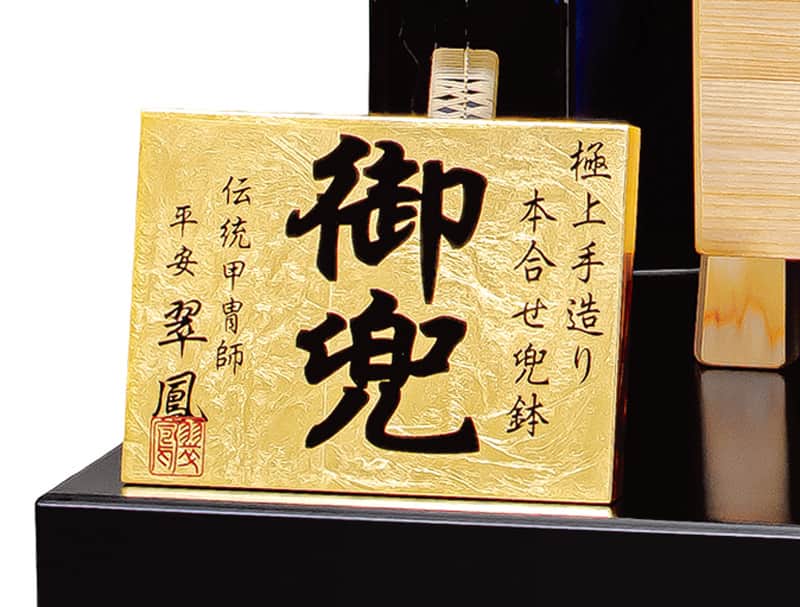 極上手造り
本合せ兜鉢
御兜
伝統甲冑師
平安 翠鳳